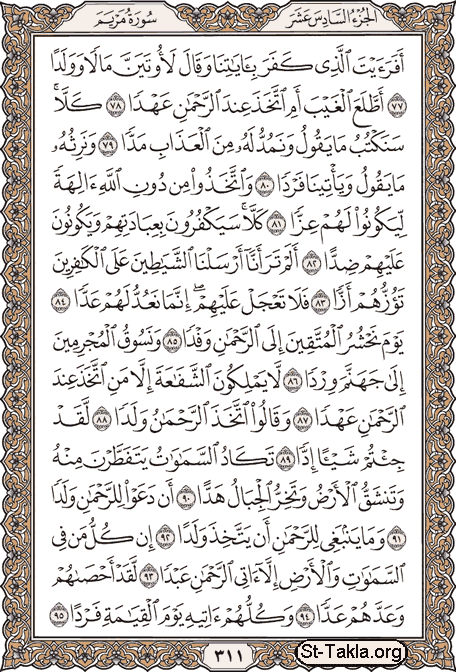 الجزء السادس عشر
سورة مريم
أَفَرَءَيْتَ ٱلَّذِى كَفَرَ بِـَٔايَـٰتِنَا وَقَالَ لَأُوتَيَنَّ مَالًا وَوَلَدًا
٧٧ أَطَّلَعَ ٱلْغَيْبَ أَمِ ٱتَّخَذَ عِندَ ٱلرَّحْمَـٰنِ عَهْدًا ٧٨ كَلَّا ۚ
سَنَكْتُبُ مَا يَقُولُ وَنَمُدُّ لَهُۥ مِنَ ٱلْعَذَابِ مَدًّا ٧٩ وَنَرِثُهُۥ
مَا يَقُولُ وَيَأْتِينَا فَرْدًا ٨٠ وَٱتَّخَذُوا۟ مِن دُونِ ٱللَّهِ ءَالِهَةً
لِّيَكُونُوا۟ لَهُمْ عِزًّا ٨١ كَلَّا ۚ سَيَكْفُرُونَ بِعِبَادَتِهِمْ وَيَكُونُونَ
عَلَيْهِمْ ضِدًّا ٨٢ أَلَمْ تَرَ أَنَّآ أَرْسَلْنَا ٱلشَّيَـٰطِينَ عَلَى ٱلْكَـٰفِرِينَ
تَؤُزُّهُمْ أَزًّا ٨٣ فَلَا تَعْجَلْ عَلَيْهِمْ ۖ إِنَّمَا نَعُدُّ لَهُمْ عَدًّا ٨٤
يَوْمَ نَحْشُرُ ٱلْمُتَّقِينَ إِلَى ٱلرَّحْمَـٰنِ وَفْدًا ٨٥ وَنَسُوقُ ٱلْمُجْرِمِينَ
إِلَىٰ جَهَنَّمَ وِرْدًا ٨٦ لَّا يَمْلِكُونَ ٱلشَّفَـٰعَةَ إِلَّا مَنِ ٱتَّخَذَ عِندَ
ٱلرَّحْمَـٰنِ عَهْدًا ٨٧ وَقَالُوا۟ ٱتَّخَذَ ٱلرَّحْمَـٰنُ وَلَدًا ٨٨ لَّقَدْ
جِئْتُمْ شَيْـًٔا إِدًّا ٨٩ تَكَادُ ٱلسَّمَـٰوَٰتُ يَتَفَطَّرْنَ مِنْهُ
وَتَنشَقُّ ٱلْأَرْضُ وَتَخِرُّ ٱلْجِبَالُ هَدًّا ٩٠ أَن دَعَوْا۟ لِلرَّحْمَـٰنِ وَلَدًا
٩١ وَمَا يَنۢبَغِى لِلرَّحْمَـٰنِ أَن يَتَّخِذَ وَلَدًا ٩٢ إِن كُلُّ مَن فِى
ٱلسَّمَـٰوَٰتِ وَٱلْأَرْضِ إِلَّآ ءَاتِى ٱلرَّحْمَـٰنِ عَبْدًا ٩٣ لَّقَدْ أَحْصَىٰهُمْ
وَعَدَّهُمْ عَدًّا ٩٤ وَكُلُّهُمْ ءَاتِيهِ يَوْمَ ٱلْقِيَـٰمَةِ فَرْدًا ٩٥
٣١١
St-Takla.org